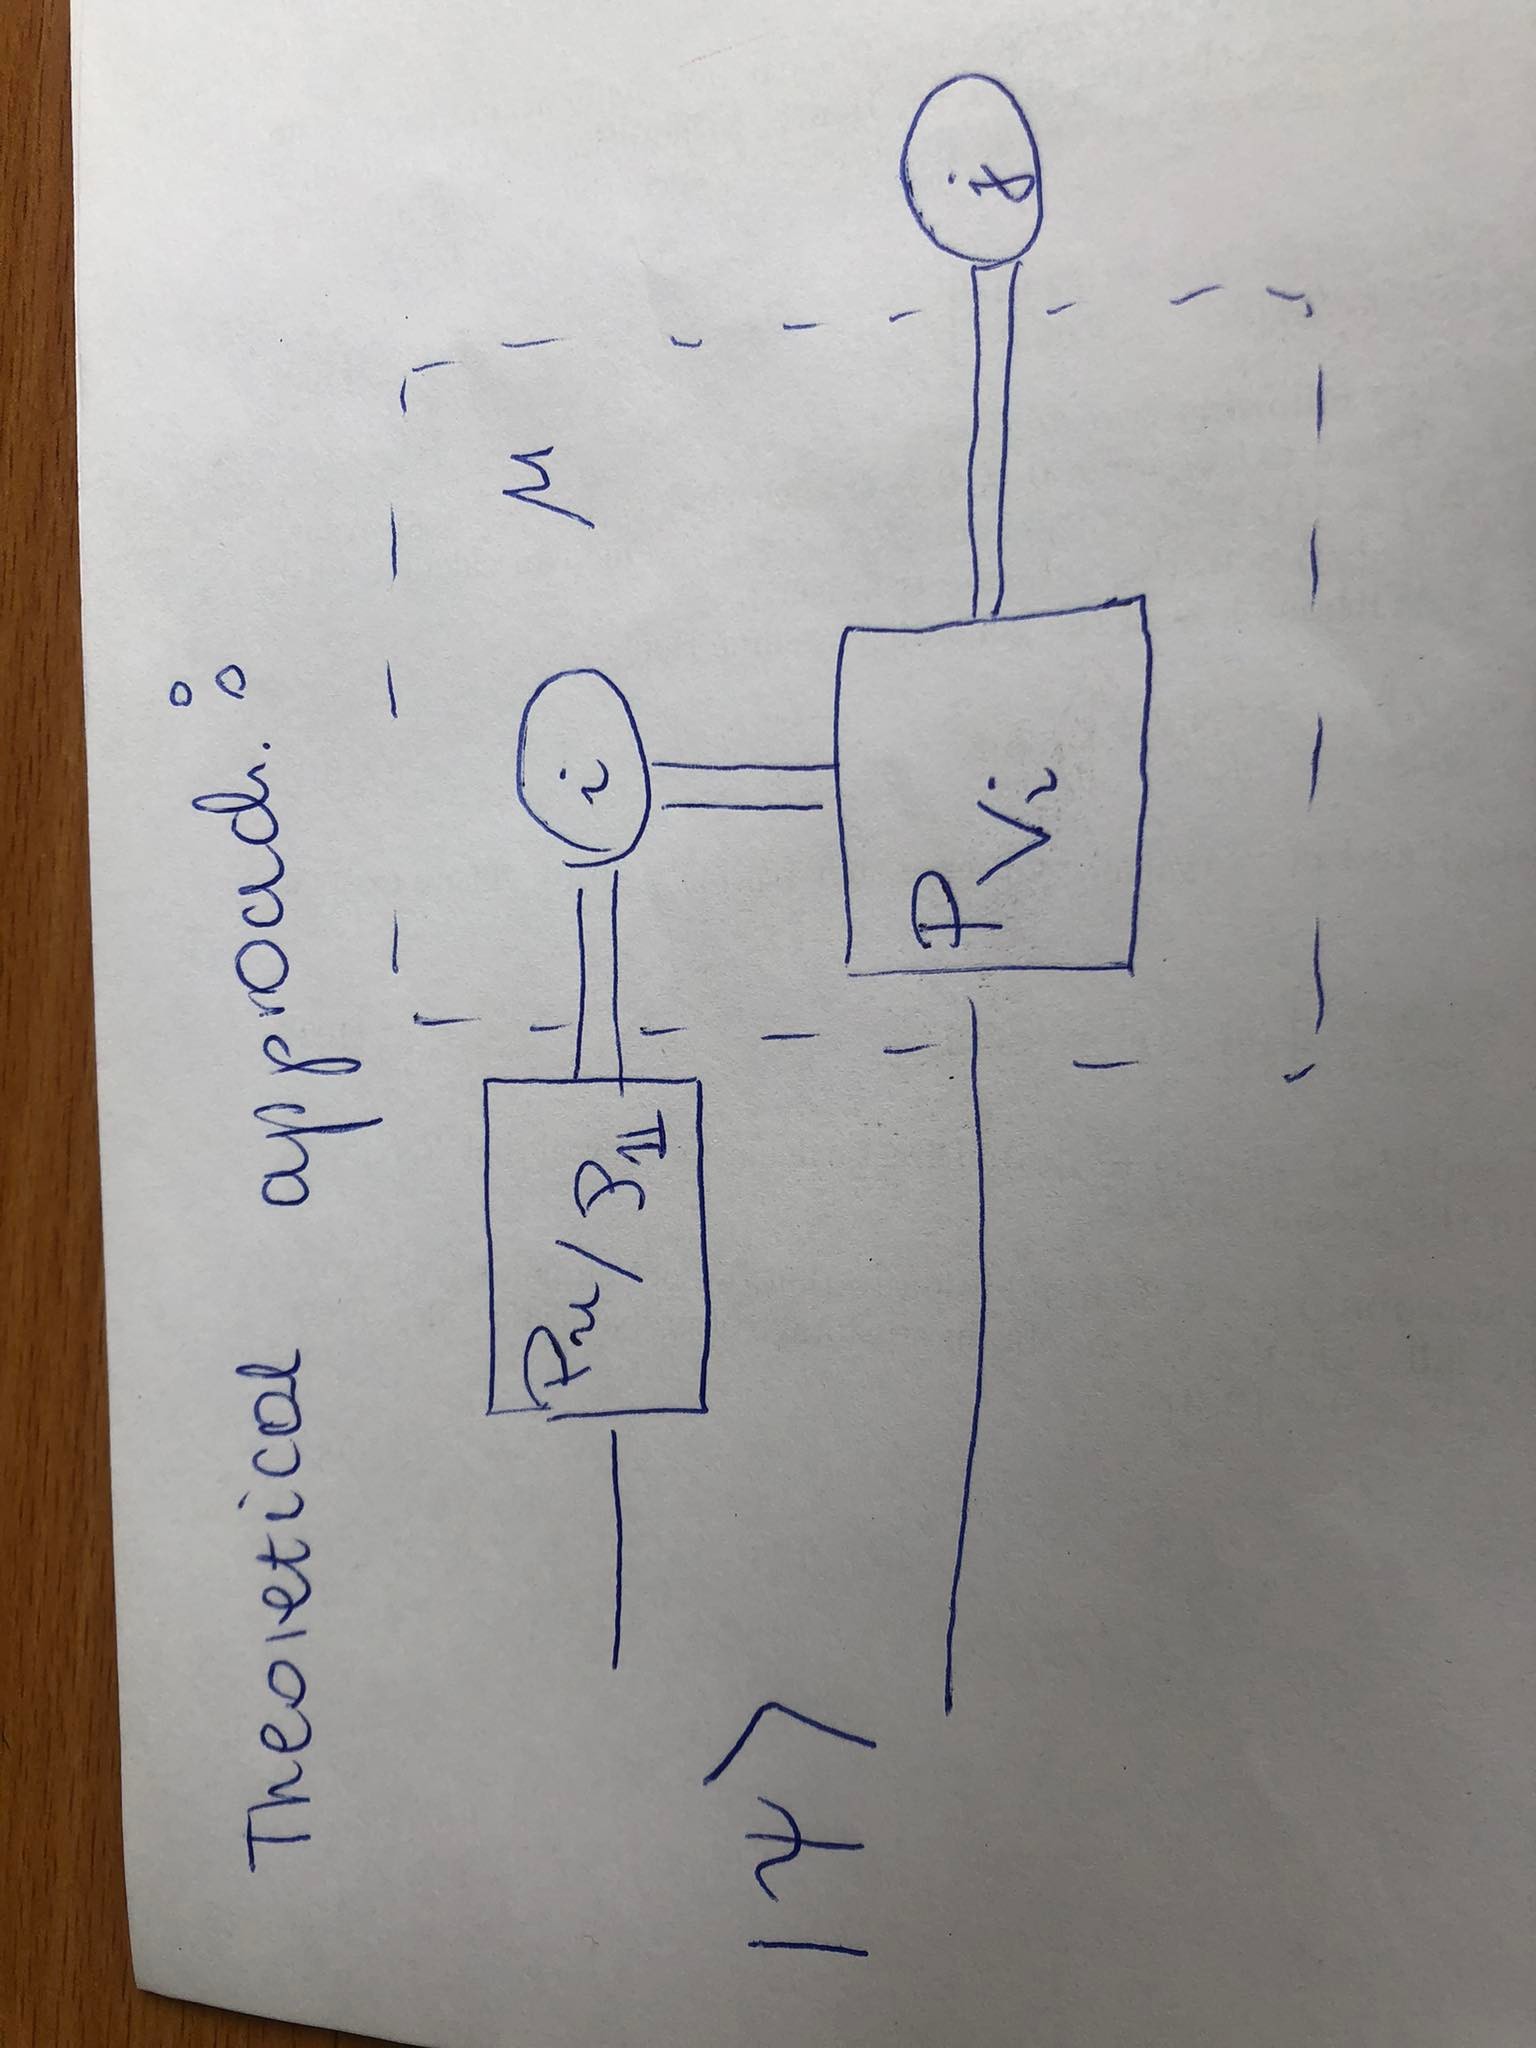 Theoretical approach:
P𝓊/P𝟙
i
μ
|ψ⟩
P_Vi
j